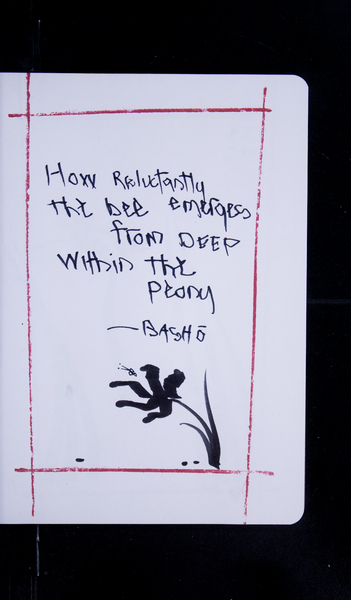 How Reluctantly
the bee emerges
from DEEP
within the
Peony
—BASHŌ